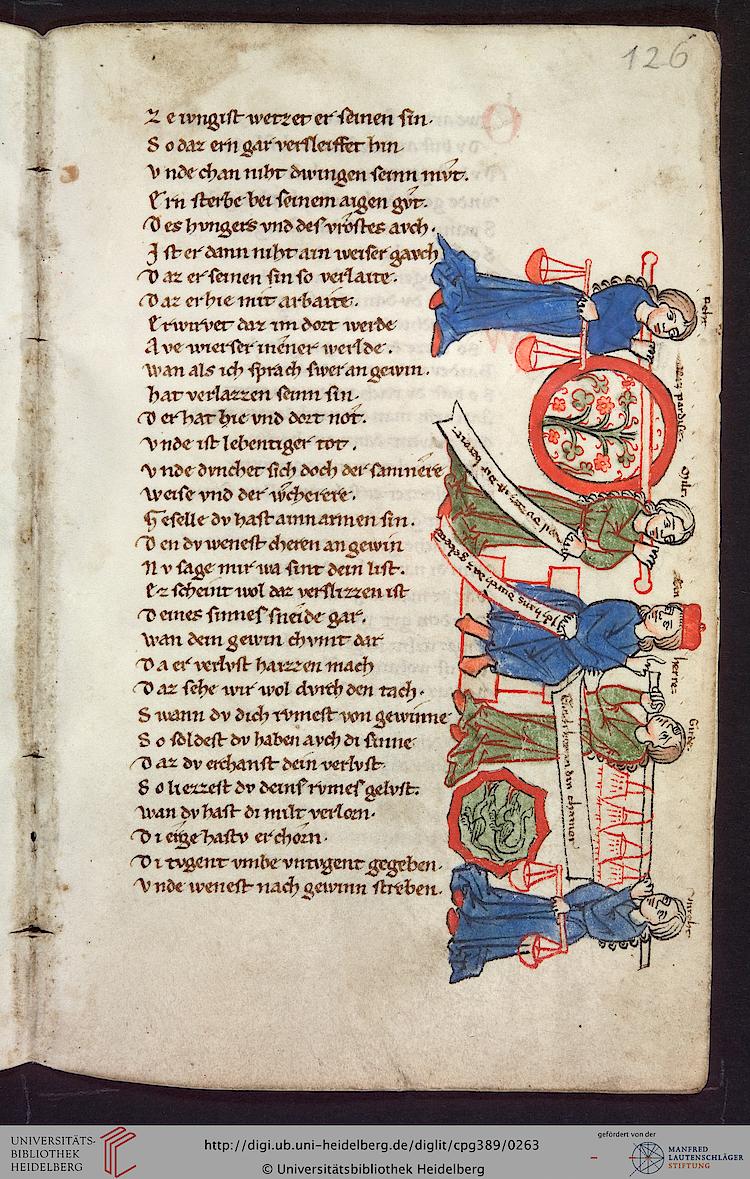 126
Ze iungist wetzet er seinen sin.
So daz ern gar versleiffet hin
Vnde chan niht dwingen seinn mvͦt.
Ern sterbe bei seinem aigen gvͦt.
Des hvngers vnd des vrostes avch.
Ist er dann niht ain weiser gavch
Daz er seinen sin so verlaite.
Daz er hie mit arbaite.
Erwirvet daz im dort werde
Ave wierser in ener werlde.
Wan als ich sprach swer an gewin.
hat verlazzen seinn sin.
Der hat hie vnd dort not.
Vnde ist lebentiger tot.
Vnde dvnchet sich doch der samnere
Weise vnd der wͦcherere.
Geselle dv hast ainn armen sin.
Den dv wenest cheren an gewin
Nv sage mir wa sint dein list.
Ez scheint wol daz verslizzen ist
Deines sinnes sneide gar.
Wan dein gewin chvmt dar
Da er verlvst haizzen mach
Daz sehe wir wol dvrch den tach.
Swann dv dich rvmest von gewinne
So soldest dv haben avch di sinne
Daz dv erchanst dein verlvst
So liezzest dv deins rvmes gelvst.
Wan dv hast di milt verlorn.
Di eige hastv erchorn.
Di tvgent vmbe vntvgent gegeben.
Vnde wenest nach gewinn streben.
Reht
daz pardise.
Milt
ein
herre
Girde
vnreht
Ich han durch daz geben
UNIVERSITÄTS-
BIBLIOTHEK
HEIDELBERG
http://digi.ub.uni-heidelberg.de/diglit/cpg389/0263
© Universitätsbibliothek Heidelberg
gefördert von der
MANFRED
LAUTENSCHLÄGER
STIFTUNG